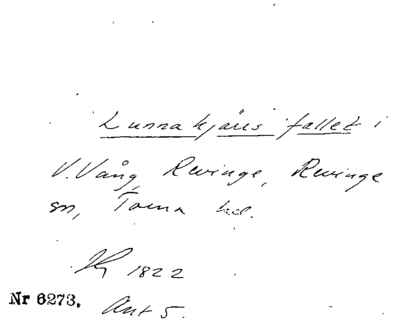 Lunnakjärrs fallet i
V. Vång, Revinge, Revinge
sn, Torna hd.
1822
Nr 6273. Akt 5.